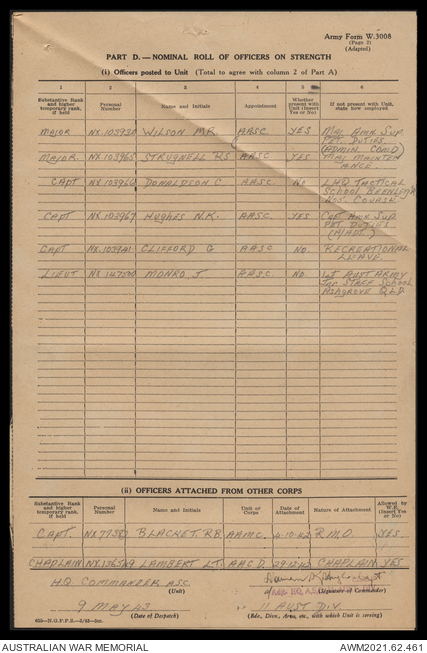 Army Form W.3008
(Page 2)
(Adapted)
PART D.—NOMINAL ROLL OF OFFICERS ON STRENGTH
(i) Officers posted to Unit (Total to agree with column 2 of Part A)
1 2 3 4 5 6
Substantive Rank and higher temporary rank, if held
Personal Number
Name and Initials
Appointment
Whether present with Unit (Insert Yes or No)
If not present with Unit, state how employed
MAJOR WILSON M.R. AASC YES Maj Amn Sup
PET. DUTIES
(ADMIN COMD)
MAJOR NX.103965 STRUGNELL RS AASC YES MAJ MAINTEN
ANCE
CAPT DONALDSON C AASC No LHQ TACTICAL
School
Nos. Course
CAPT NX.103967 HUGHES N.K. AASC. YES Capt Amn Sup
PET DUTIES
(A/ADJT)
CAPT CLIFFORD G AASC NO. RECREATIONAL
LEAVE.
LIEUT MONRO. J AASC. NO 1st AUST ARMY
Jnr STAFF School
Ashgrove QLD
(ii) OFFICERS ATTACHED FROM OTHER CORPS
Substantive Rank and higher temporary rank, if held
Personal Number
Name and Initials
Unit or Corps
Date of Attachment
Nature of Attachment
Allowed by W.E. (Insert Yes or No)
CAPT. BLACKET. RB. AAMC. 4-10-42 R.M.O. YES
CHAPLAIN LAMBERT LT. 29-12-42 CHAPLAIN YES
HQ COMMANDER ASC.
(Unit)
Capt
(Signature of Commander)
9 MAY 43
(Date of Despatch)
11 AUST DIV.
(Bde., Divn., Area, etc., with which Unit is serving)
AUSTRALIAN WAR MEMORIAL
AWM2021.62.461